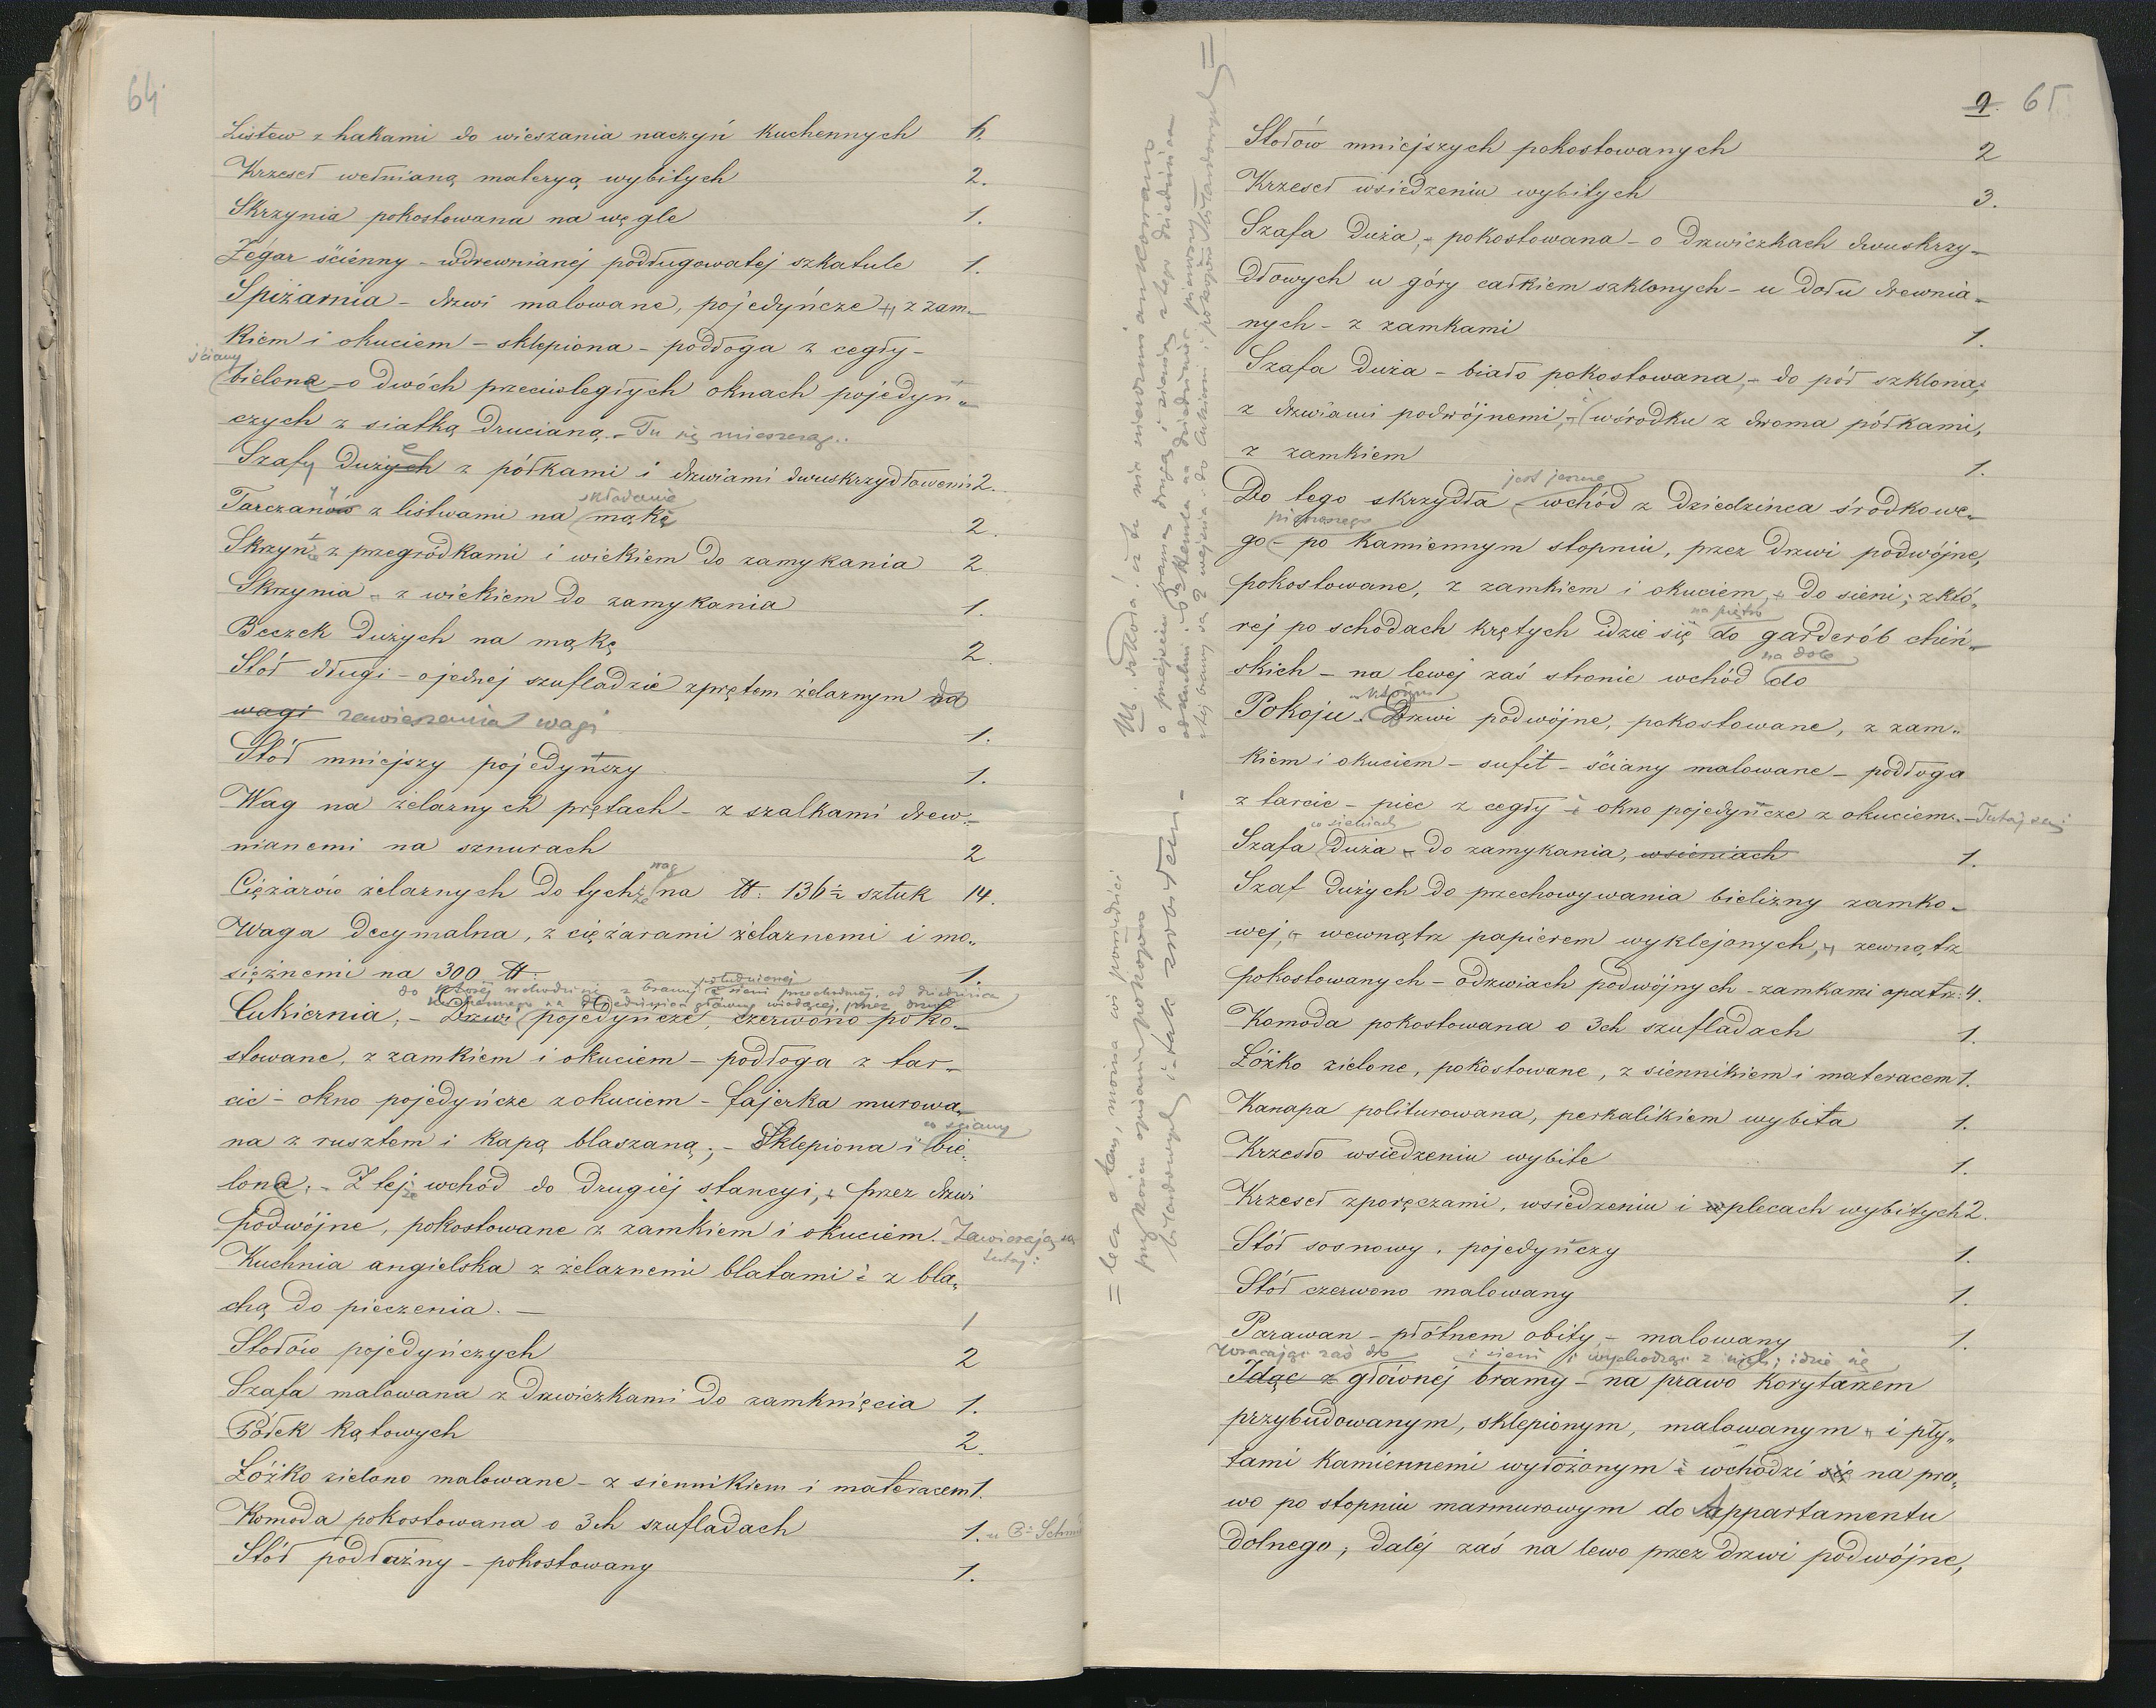 64.
Listew z hakami do wieszania naczyń kuchennych 6.
Krzeseł wełnianą materyą wybitych 2.
Skrzynia pokostowana na węgle 1.
Zégar ścienny - wdrewnianéj podługowatéj szkatule 1.
Spiżarnia - drzwi malowane, pojedyńcze z zam-
kiem i okuciem - sklepiona - podłoga z cegły -
ściany
bielone - o dwóch przeciwległych oknach pojedyń-
czych z siatką drucianą. - Tu się mieszczą:
Szafy duże z półkami i drzwiami dwuskrzydłowemi 2.
składanie
Tarczany z listwami na mąkę 2.
Skrzyń z przegródkami i wiekiem do zamykania 2
Skrzynia - z wiekiem do zamykania 1.
Beczek dużych na mąkę 2.
Stół długi - o jednéj szufladzie z prętem żelaznym do
wagi zawieszenia wagi 1.
Stół mniejszy pojedyńczy 1.
Wag na żelaznych prętach - z szalkami drew-
nianemi na sznurach 2
wag
Ciężarów żelaznych do tychże na ℔: 136 ½ sztuk 14.
Waga decymalna, z ciężarami żelaznemi i mo-
siężnemi na 300 ℔: 1.
południowéj
do któréj wchodzi się z bramy z sieni przechodniéj, od dziedzińca
kuchennego na dziedziniec główny wiodącéj, przez drzwi
Cukiernia, - Drzwi pojedyńcze, czerwono poko-
stowane, z zamkiem i okuciem - podłoga z tar-
cic - okno pojedyńcze z okuciem - fajerka murowa-
na z rusztem i kapą blaszaną; - Sklepiona i bie-
ściany
lona. - Z tejże wchód do drugiéj stancyi, przez drzwi
podwójne, pokostowane z zamkiem i okuciem. Zawierają się
tutaj:
Kuchnia angielska z żelaznemi blatami i z bla-
chą do pieczenia. - 1
Stołów pojedyńczych 2
Szafa malowana z drzwiczkami do zamknięcia 1.
Półek kątowych 2.
Łóżko zielono malowane - z siennikiem i materacem 1.
Komoda pokostowana o 3ch szufladach 1. u
Stół podłużny - pokostowany 1.
9. 65.
Stołów mniejszych pokostowanych 2
Krzeseł wsiedzeniu wybitych 3.
Szafa duża, - pokostowana - o drzwiczkach dwuskrzy-
dłowych u góry całkiem szklonych - u dołu drewnia-
nych - z zamkami 1.
Szafa duża - biało pokostowana, - do pół szklona,
z drzwiami podwójnemi, i wśrodku z dwoma półkami,
z zamkiem 1.
jest jeszcze
Do tego skrzydła - wchód z dziedzińca środkowe-
pierwszego
go - po kamiennym stopniu, przez drzwi podwójne,
pokostowane, z zamkiem i okuciem, do sieni; z któ-
na piętro
réj po schodach krętych idzie się do garderób chiń-
na dole
skich - na lewéj zaś stronie wchód do
w którym
Pokoju. Drzwi podwójne, pokostowane, z zam-
kiem i okuciem - sufit - ściany malowane - podłoga
z tarcic - piec z cegły i okno pojedyńcze z okuciem. - Tutaj są:
w sieniach
Szafa duża do zamykania, wsieniach 1.
Szaf dużych do przechowywania bielizny zamko-
wéj, wewnątrz papierem wyklejonych, zewnątrz
pokostowanych - o drzwiach podwójnych - zamkami opatrz: 4.
Komoda pokostowana o 3ch szufladach 1.
Łóżko zielone, pokostowane, z siennikiem i materacem 1.
Kanapa politurowana, perkalikiem wybita 1.
Krzesło wsiedzeniu wybite 1.
Krzeseł z poręczami, wsiedzeniu i wplecach wybitych 2.
Stół sosnowy, pojedyńczy 1.
Stół czerwono malowany 1.
Parawan - płótnem obity, - malowany 1.
Wracając zaś do i sieni i wychodząc z nich; idzie się
Idąc z głównéj bramy - na prawo korytarzem
przybudowanym, sklepionym, malowanym i pły-
tami kamiennemi wyłożonym i wchodzi się na pra-
wo po stopniu marmurowym do Appartamentu
dolnego; daléj zaś na lewo przez drzwi podwójne,
NB. szkoda! iż tu nie
= lecz o tem, można w
przy końcu opisania pokojów
bilardowych i tak zrobiłem -